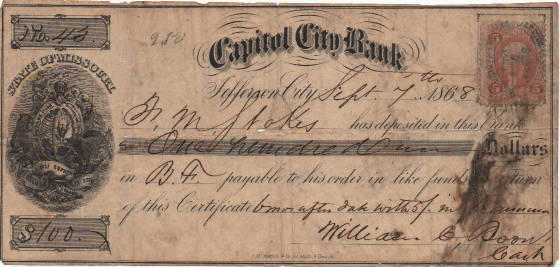 No. 43
250
Capitol City Bank
STATE OF MISSOURI
Jefferson City Sept. 7th 1868
M Stokes has deposited in this Bank
One hundred Dollars
in B.F. payable to his order in like funds return
of this Certificate 6 mos after date with 5 pr annum
William C. Boon
Cash
$100.